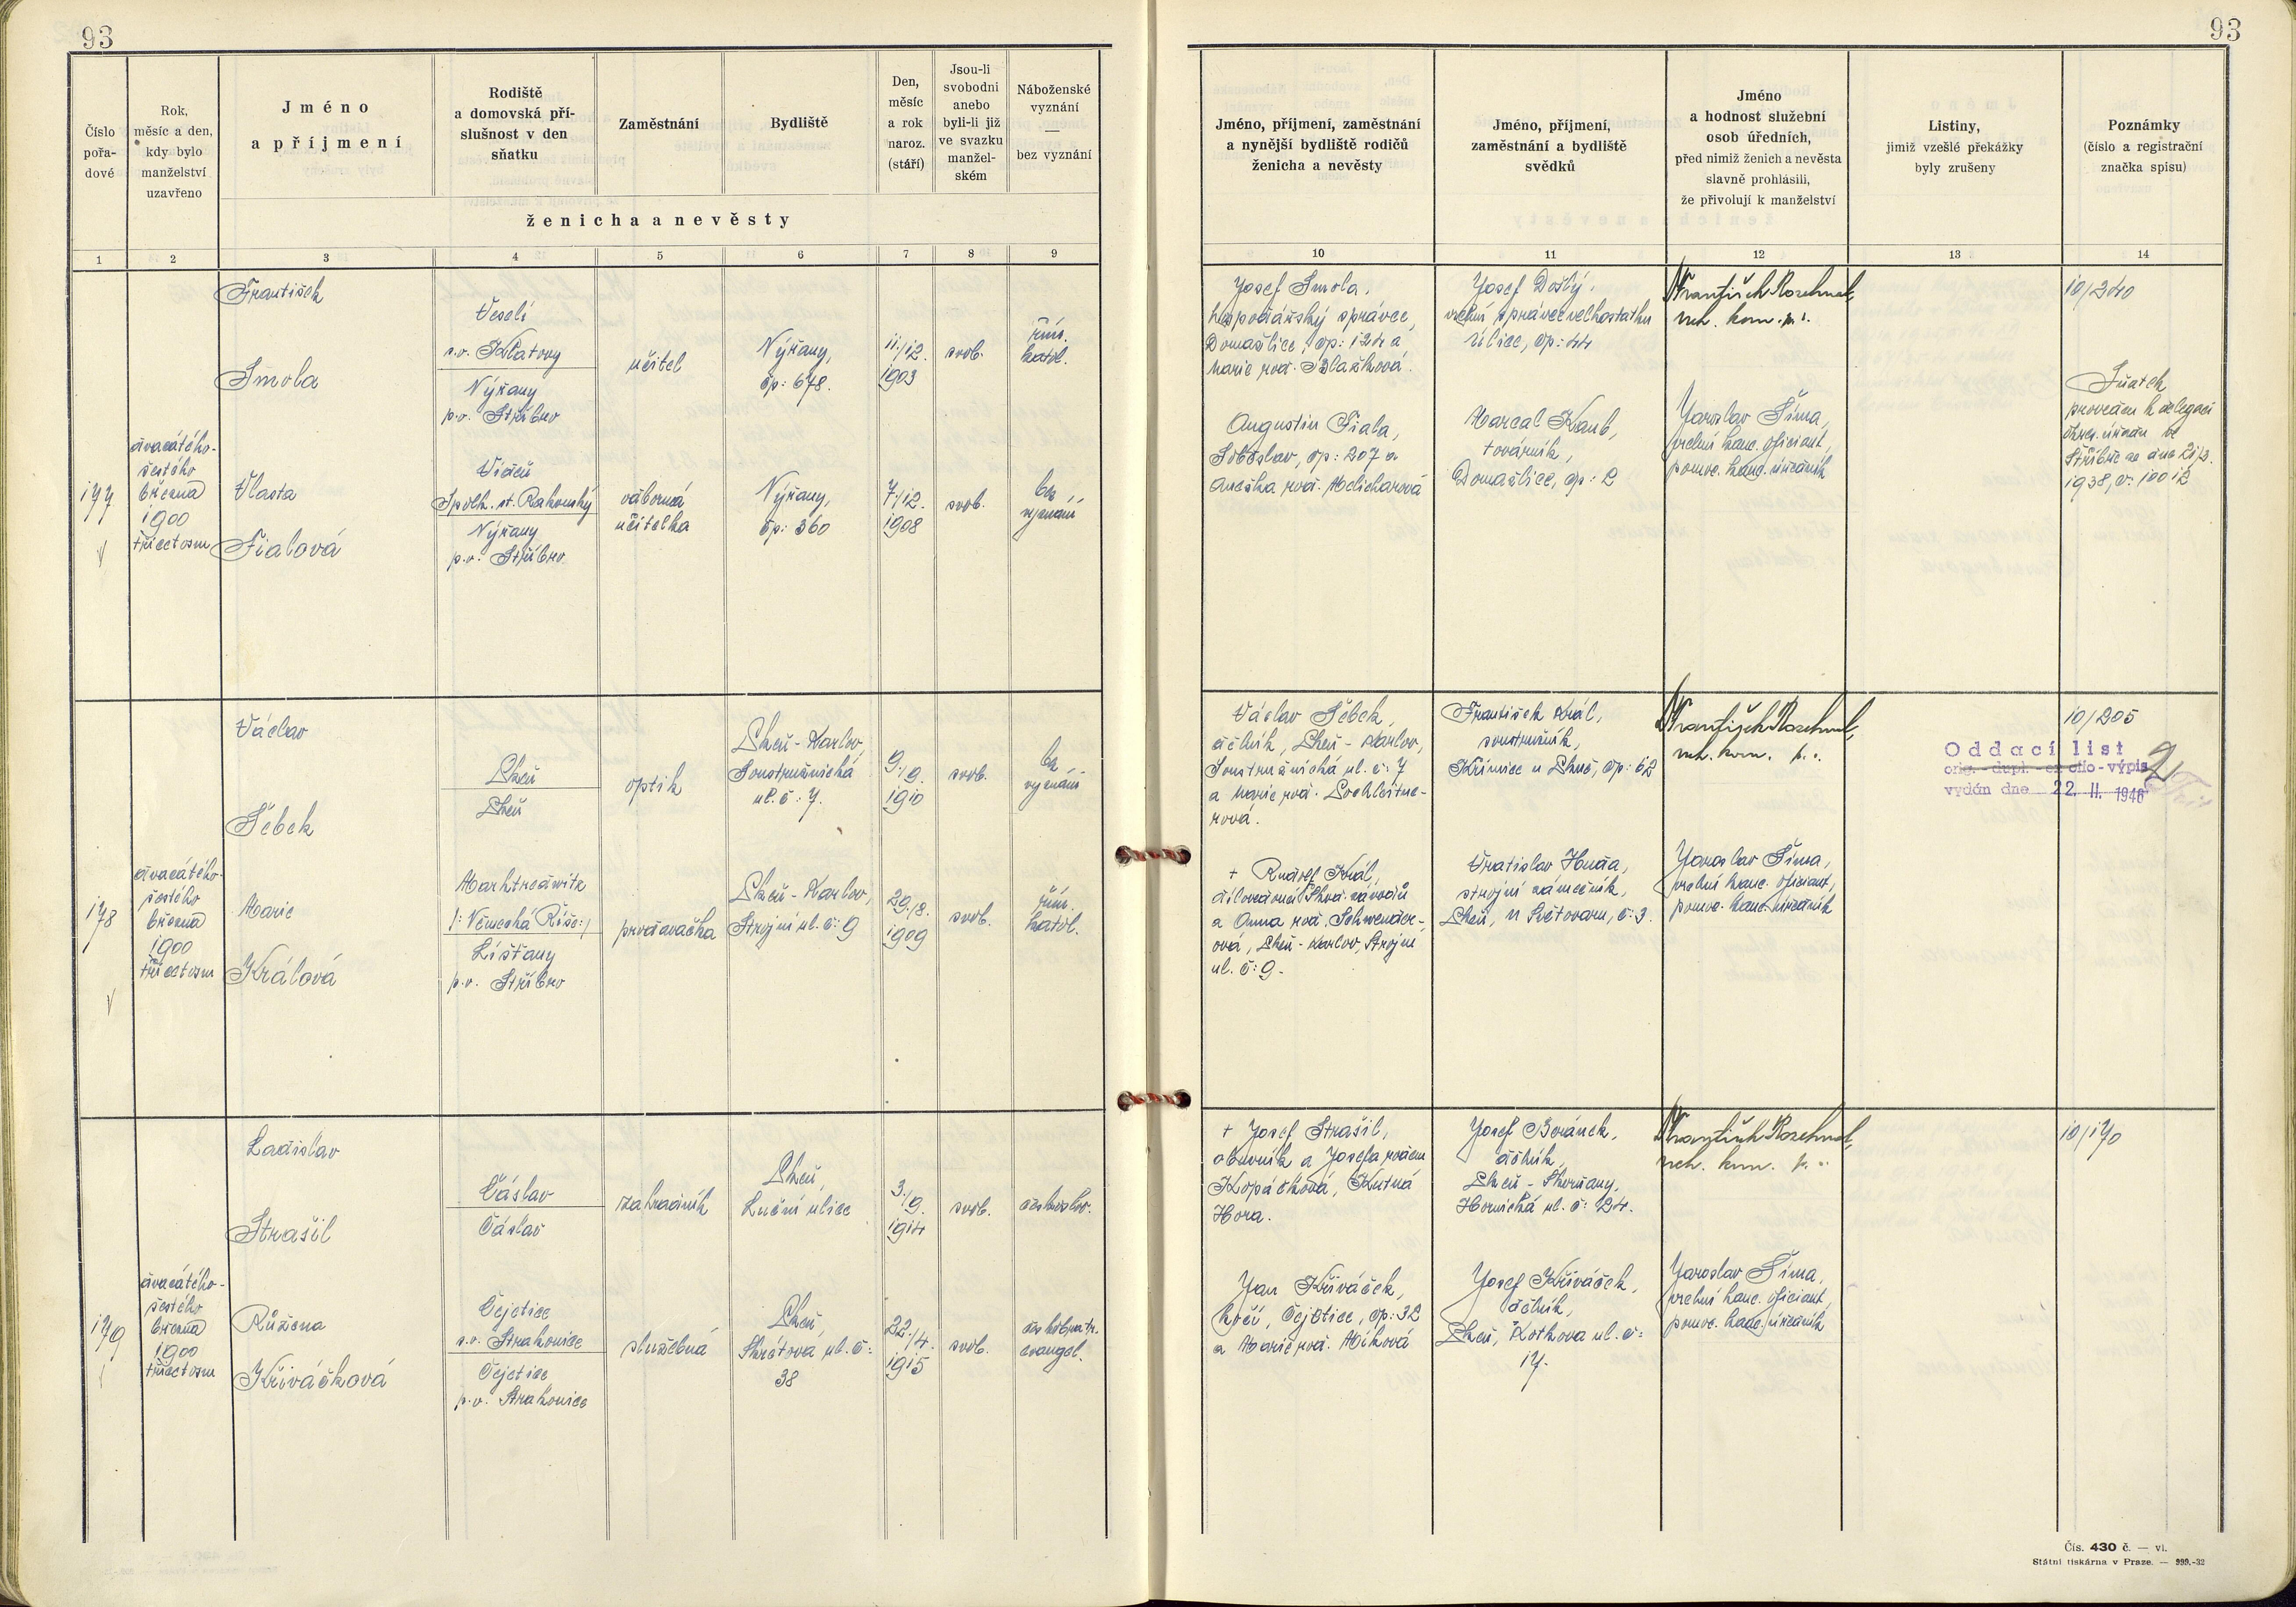 93
93
Číslo
pořa-
dové
Rok,
měsíc a den,
kdy bylo
manželství
uzavřeno
Jméno
a příjmení
Rodiště
a domovská pří-
slušnost v den
sňatku
Zaměstnání
Bydliště
Den,
měsíc
a rok
naroz.
(stáří)
Jsou-li
svobodni
anebo
byli-li již
ve svazku
manžel-
ském
Náboženské
vyznání
—
bez vyznání
ženicha a nevěsty
Jméno, příjmení, zaměstnání
a nynější bydliště rodičů
ženicha a nevěsty
Jméno, příjmení,
zaměstnání a bydliště
svědků
Jméno
a hodnost služební
osob úředních,
před nimiž ženich a nevěsta
slavně prohlásili,
že přivolují k manželství
Listiny,
jimiž vzešlé překážky
byly zrušeny
Poznámky
(číslo a registrační
značka spisu)
1 2 3 4 5 6 7 8 9 10 11 12 13 14
177
dvacátého-
šestého
března
1900
třicetosm
František
Smola
Veselí
s.o. Klatovy
Nýřany
p.o. Stříbro
učitel
Nýřany,
čp: 678.
11./12.
1903
svob.
řím.
katol.
Vlasta
Fialová
Videň
Nýřany
p.o. Stříbro
odborná
učitelka
Nýřany,
čp: 360
7./12.
1908
svob.
bez
vyznání
Josef Smola,
hospodářský správce,
Domažlice, čp: 124 a
Marie roz. Blažková.
Augustin Fiala,
Soběslav, čp: 207 a
Anežka roz. Melicharová
Josef Došlý,
vrchní správce velkostatku
Úlice, čp: 44
Marcal Kaub,
továrník,
Domažlice, čp: 2
František Rozehnal,
rch. kom. p. r.
Jaroslav Šíma,
vrchní kanc. oficiant,
pomoc. kanc. úředník
10/240
Sňatek
proveden k delegaci
okres. úřadu ve
Stříbře ze dne 21/3.
1938, č: 10012
178
dvacátého-
šestého
března
1900
třicetosm
Václav
Šebek
Plzeň
Plzeň
optik
Plzeň-Karlov,
Soustružnická
ul. č: 7.
9./9.
1910
svob.
bez
vyznání
Marie
Králová
Marktredwitz
/: Německá Říše:/
Líšťany
p.o. Stříbro
prodavačka
Plzeň-Karlov,
Strojní ul. č: 9
29./8.
1909
svob.
řím.
katol.
Václav Šebek,
dělník, Plzeň-Karlov,
Soustružnická ul. č: 7
a Marie roz. Lochleitne-
rová.
+ Rudolf Král,
a Anna roz. Schwender-
ová, Plzeň-Karlov, Strojní
ul. č: 9.
František Král,
soustružník,
Křimice u Plzně, čp: 62
Vratislav Huda,
strojní zámečník,
Plzeň, u Světovaru, č: 3.
František Rozehnal,
rch. kom. p. r.
Jaroslav Šíma,
vrchní kanc. oficiant,
pomoc. kanc. úředník
10/205
Oddací list
orig.-dupl.-ex offo-výpis
vydán dne 22. II. 1946
179
dvacátého-
šestého
března
1900
třicetosm
Ladislav
Strašil
Čáslav
Čáslav
zahradník
Plzeň,
Luční ulice
3./9.
1914
svob.
českoslov.
Růžena
Křiváčková
Čejetice
s.o. Strakonice
Čejetice
p.o. Strakonice
služebná
Plzeň,
Škrétova ul. č:
38
22./4.
1915
svob.
českobratr.
evangel.
+ Josef Strašil,
obuvník a Josefa rozen
Kopáčková, Kutná
Hora.
Jan Křiváček,
kočí, Čejetice, čp: 32
a Marie roz. Míková
Josef Beránek,
dělník,
Plzeň-Skvrňany,
Hornická ul. č: 24.
Josef Křiváček,
dělník,
Plzeň, Kotkova ul. č:
17.
František Rozehnal,
rch. kom. p. r.
Jaroslav Šíma,
vrchní kanc. oficiant,
pomoc. kanc. úředník
10/170
Čís. 430 č. — vi.
Státní tiskárna v Praze. — 999.-32